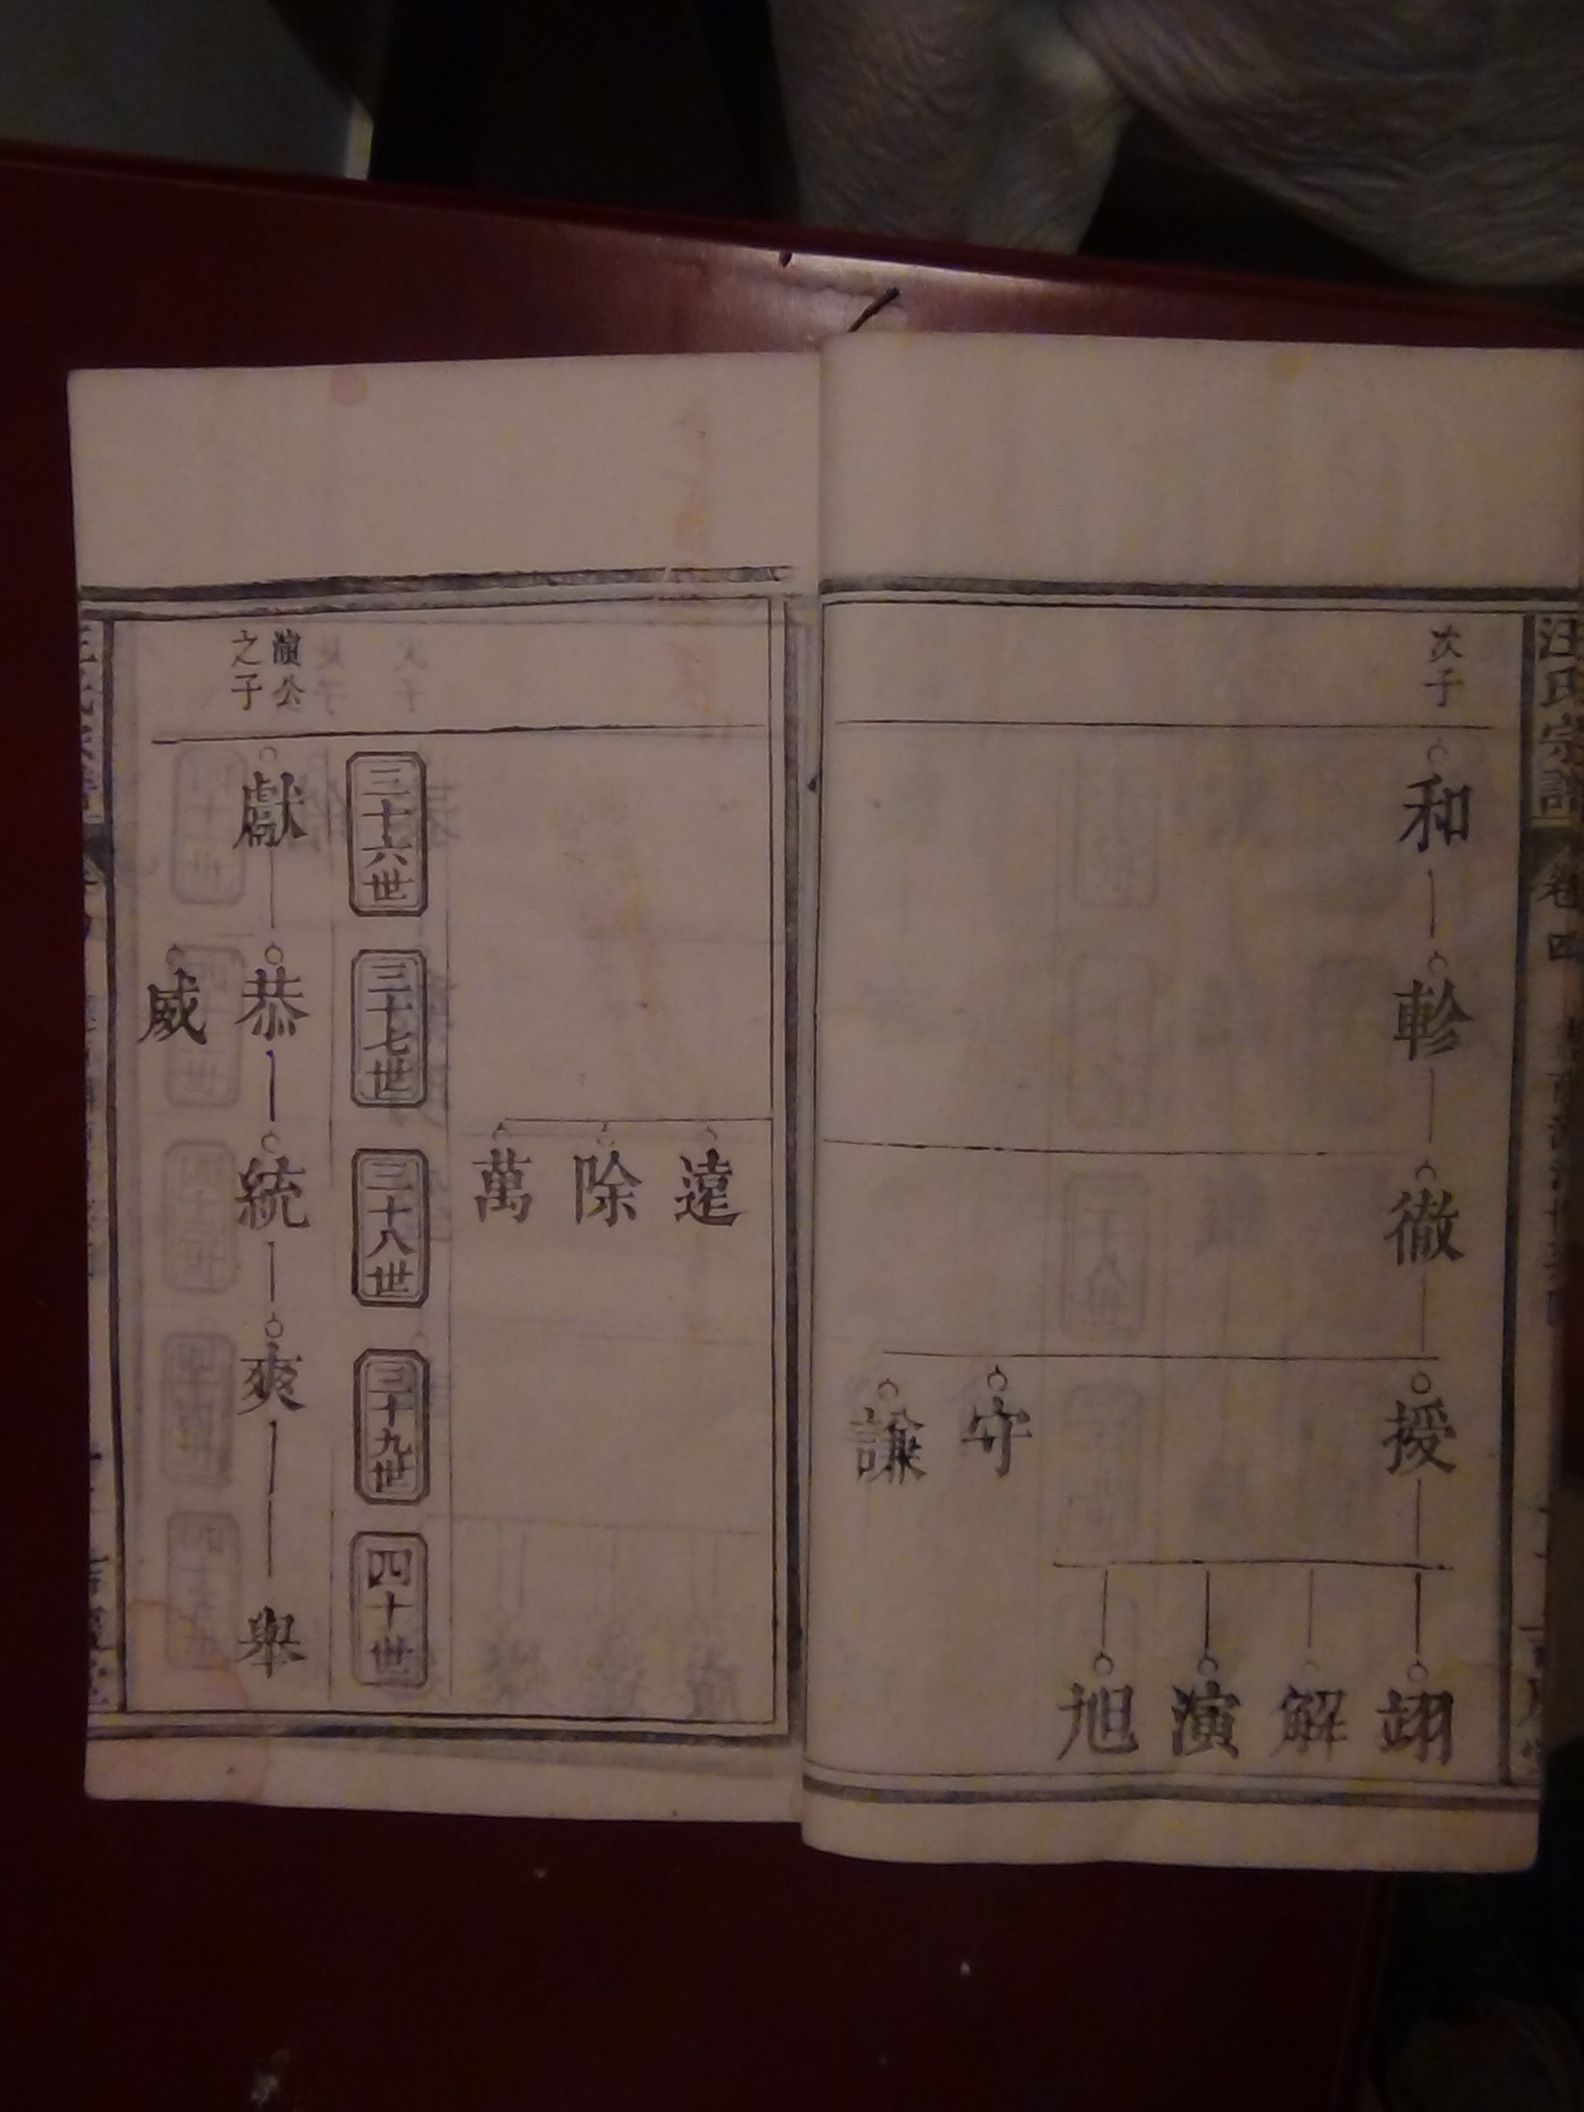 汪氏宗譜
卷四
次子
和
軫
徹
授
翊
解
演
旭
守
謙
遠
除
萬
三十六世
三十七世
三十八世
三十九世
四十世
演公
之子
獻
恭
統
爽
舉
威